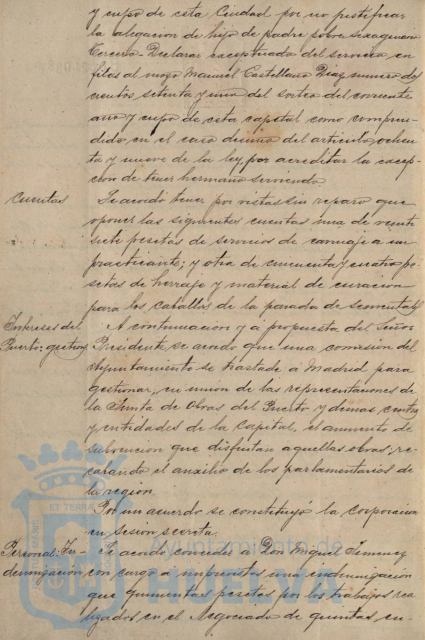 y cupo de esta Ciudad por no justificar
la alegacion de hijo de padre sobre sexagenario
Tercero Declarar exceptuado del servicio en
filas al mozo Manuel Castellano Diaz numero dos
cientos setenta y uno del sorteo del corriente
año y cupo de esta capital como compren-
dido en el caso decimo del articulo ochen
ta y nueve de la ley, por acreditar la excep-
cion de tener hermano sirviendo
Cuentas
Se acordó tener por vistas sin reparo que
oponer las siguientes cuentas una de veinte
siete pesetas de servicios de carruaje a un
practicante; y otra de cincuenta y cuatro pe
setas de herraje y material de curacion
para los caballos de la parada de sementales
Intereses del
Puerto: gestion
A continuacion y a propuesta del Señor
Presidente se acordó que una comision del
Ayuntamiento se traslade a Madrid para
gestionar, en union de las representaciones de
la Junta de Obras del Puerto y demas centros
y entidades de la Capital, el aumento de
subvencion que disfrutan aquellas obras; re-
cabando el auxilio de los parlamentarios de
la region
Por un acuerdo se constituyó la corporacion
en sesion secreta
Personal: In-
demnizacion
Se acordó conceder a Don Miguel Jimenez
con cargo a imprevistos una indemnizacion
que quinientas pesetas por los trabajos rea
lizados en el Negociado de quintas en-
ET TERRAE
Ayuntamiento de
HUELVA